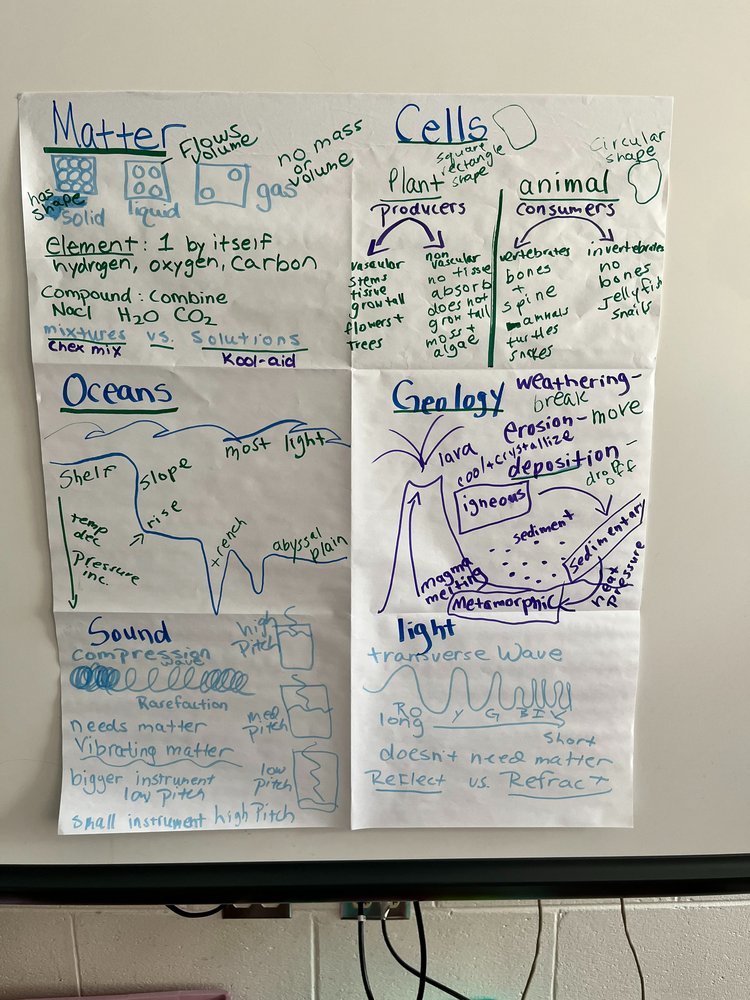 Matter
Flows
volume
no mass
or
volume
has
shape
solid
liquid
gas
element: 1 by itself
hydrogen, oxygen, Carbon
Compound: combine
Nacl H2O CO2
mixtures vs. Solutions
Chex mix
Kool-aid
Cells
square
rectangle
shape
Circular
shape
Plant
producers
vascular
stems
tissue
grow tall
flowers +
trees
non
vascular
no tissue
absorb
does not
grow tall
moss +
algae
animal
consumers
vertebrates
bones
+
spine
mamals
turtles
snakes
invertebrates
no
bones
Jellyfish
snails
Oceans
most light
Shelf
slope
rise
trench
abyssal
plain
temp
dec
Pressure
inc.
Geology
weathering-
break
erosion-move
deposition-
drop off
lava
cool + crystallize
igneous
sediment
Sedimentary
heat
pressure
Metamorphic
magma
melting
Sound
compression
wave
Rarefaction
needs matter
Vibrating matter
bigger instrument
low Pitch
small instrument high Pitch
high
Pitch
med
pitch
low
pitch
light
transverse wave
R O Y G B I V
long
short
doesn't need matter
Reflect vs. Refract